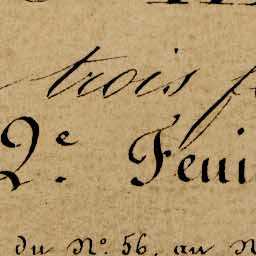 trois f
2e. Feui
du No. 56, au N